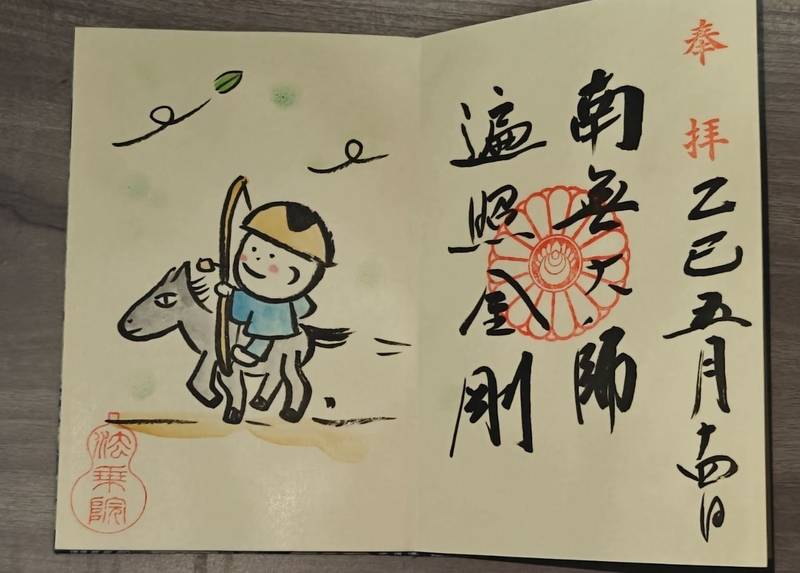 奉拝
乙巳五月十四日
南無大師
遍照金剛
法乗院